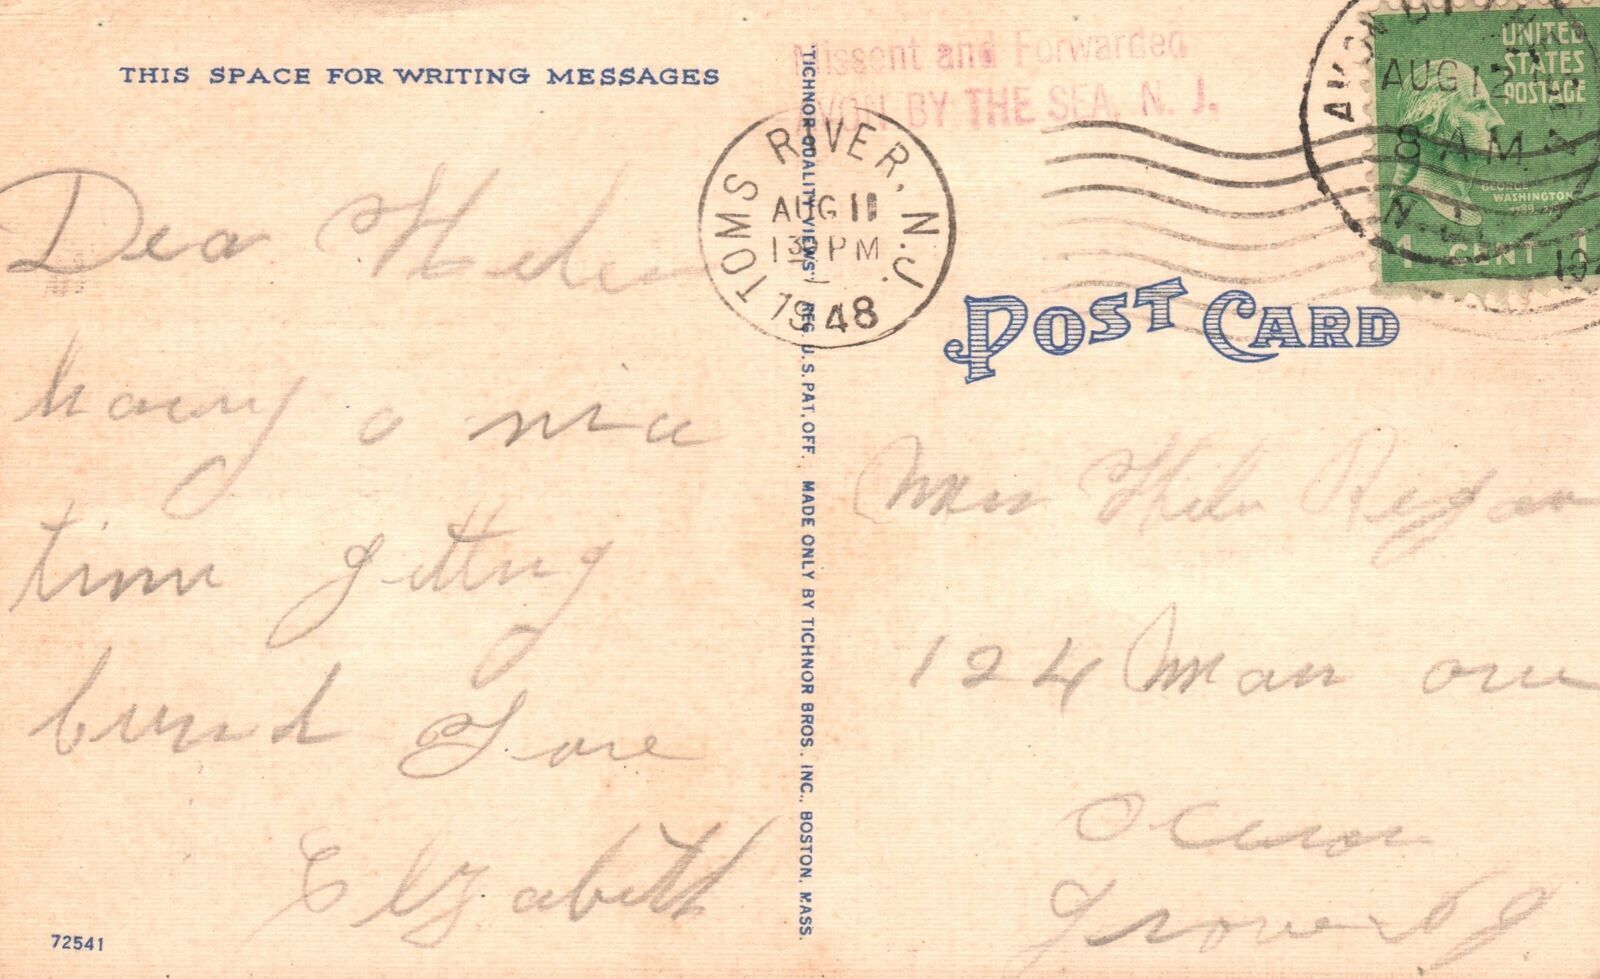 THIS SPACE FOR WRITING MESSAGES
Dea Helen
haveing a nice
time getting
burnd Love
Elizabeth
72541
"TICHNOR QUALITY VIEWS," REG. U.S. PAT. OFF. MADE ONLY BY TICHNOR BROS. INC., BOSTON, MASS.
Missent and Forwarded
AVON BY THE SEA, N. J.
TOMS RIVER, N.J.
AUG 11
PM
1948
AUG 12
8 AM
N.J.
UNITED
STATES
POSTAGE
GEORGE
WASHINGTON
1 CENT 1
POST CARD
Miss Helen Regan
124 Main
Ocean
Grove NJ